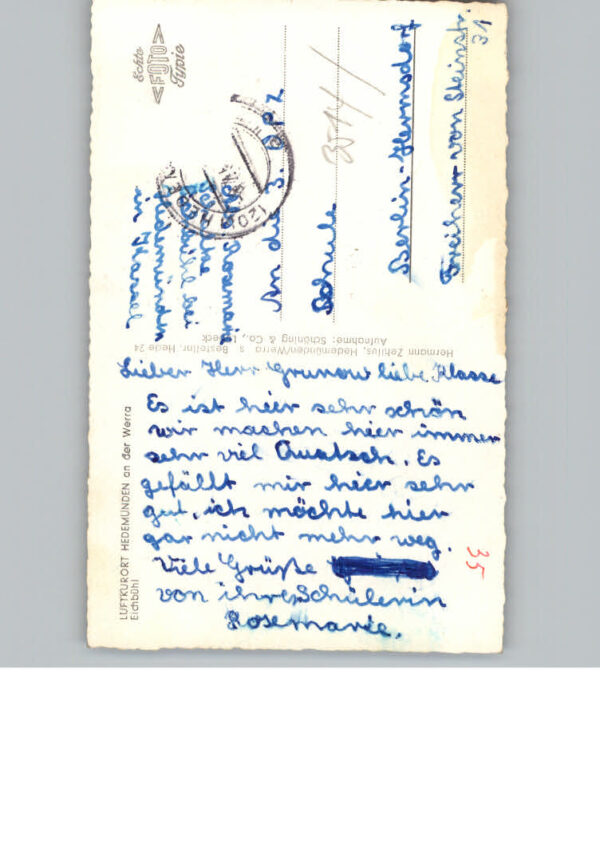 Lieber Herr Grunow liebe Klasse
Es ist hier sehr schön
wir machen hier immer
sehr viel Quatsch. Es
gefällt mir hier sehr
gut, ich möchte hier
gar nicht mehr weg.
Viele Grüße
von ihrer Schülerin
Rosemarie.
LUFTKURORT HEDEMÜNDEN an der Werra
Eichbühl
Hermann Zehlius, Hedemünden/Werra Bestellnr. Hede 24
Aufnahme: Schöning & Co., Lübeck
Echte
FOTO
Typie
Rosemarie
bühl bei
Hedemünden
in Kassel
An die 3. O.P.Z
Schule
Berlin-Hermsdorf
Freiherr von Steinstr.
31
3514/
35